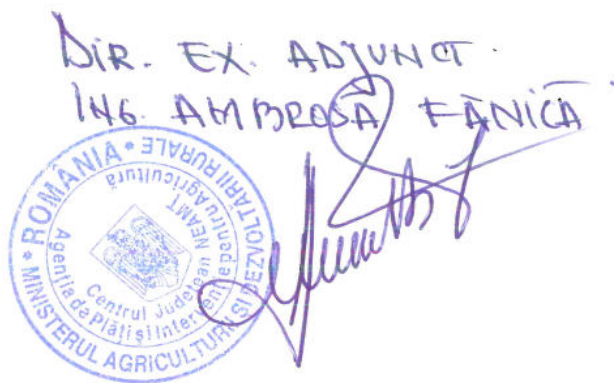 DIR. EX. ADJUNCT.
ING. AMBROSĂ FĂNICĂ
* ROMÂNIA *
MINISTERUL AGRICULTURII ȘI DEZVOLTĂRII RURALE
Agenția de Plăți și Intervenție pentru Agricultură
Centrul Județean NEAMȚ